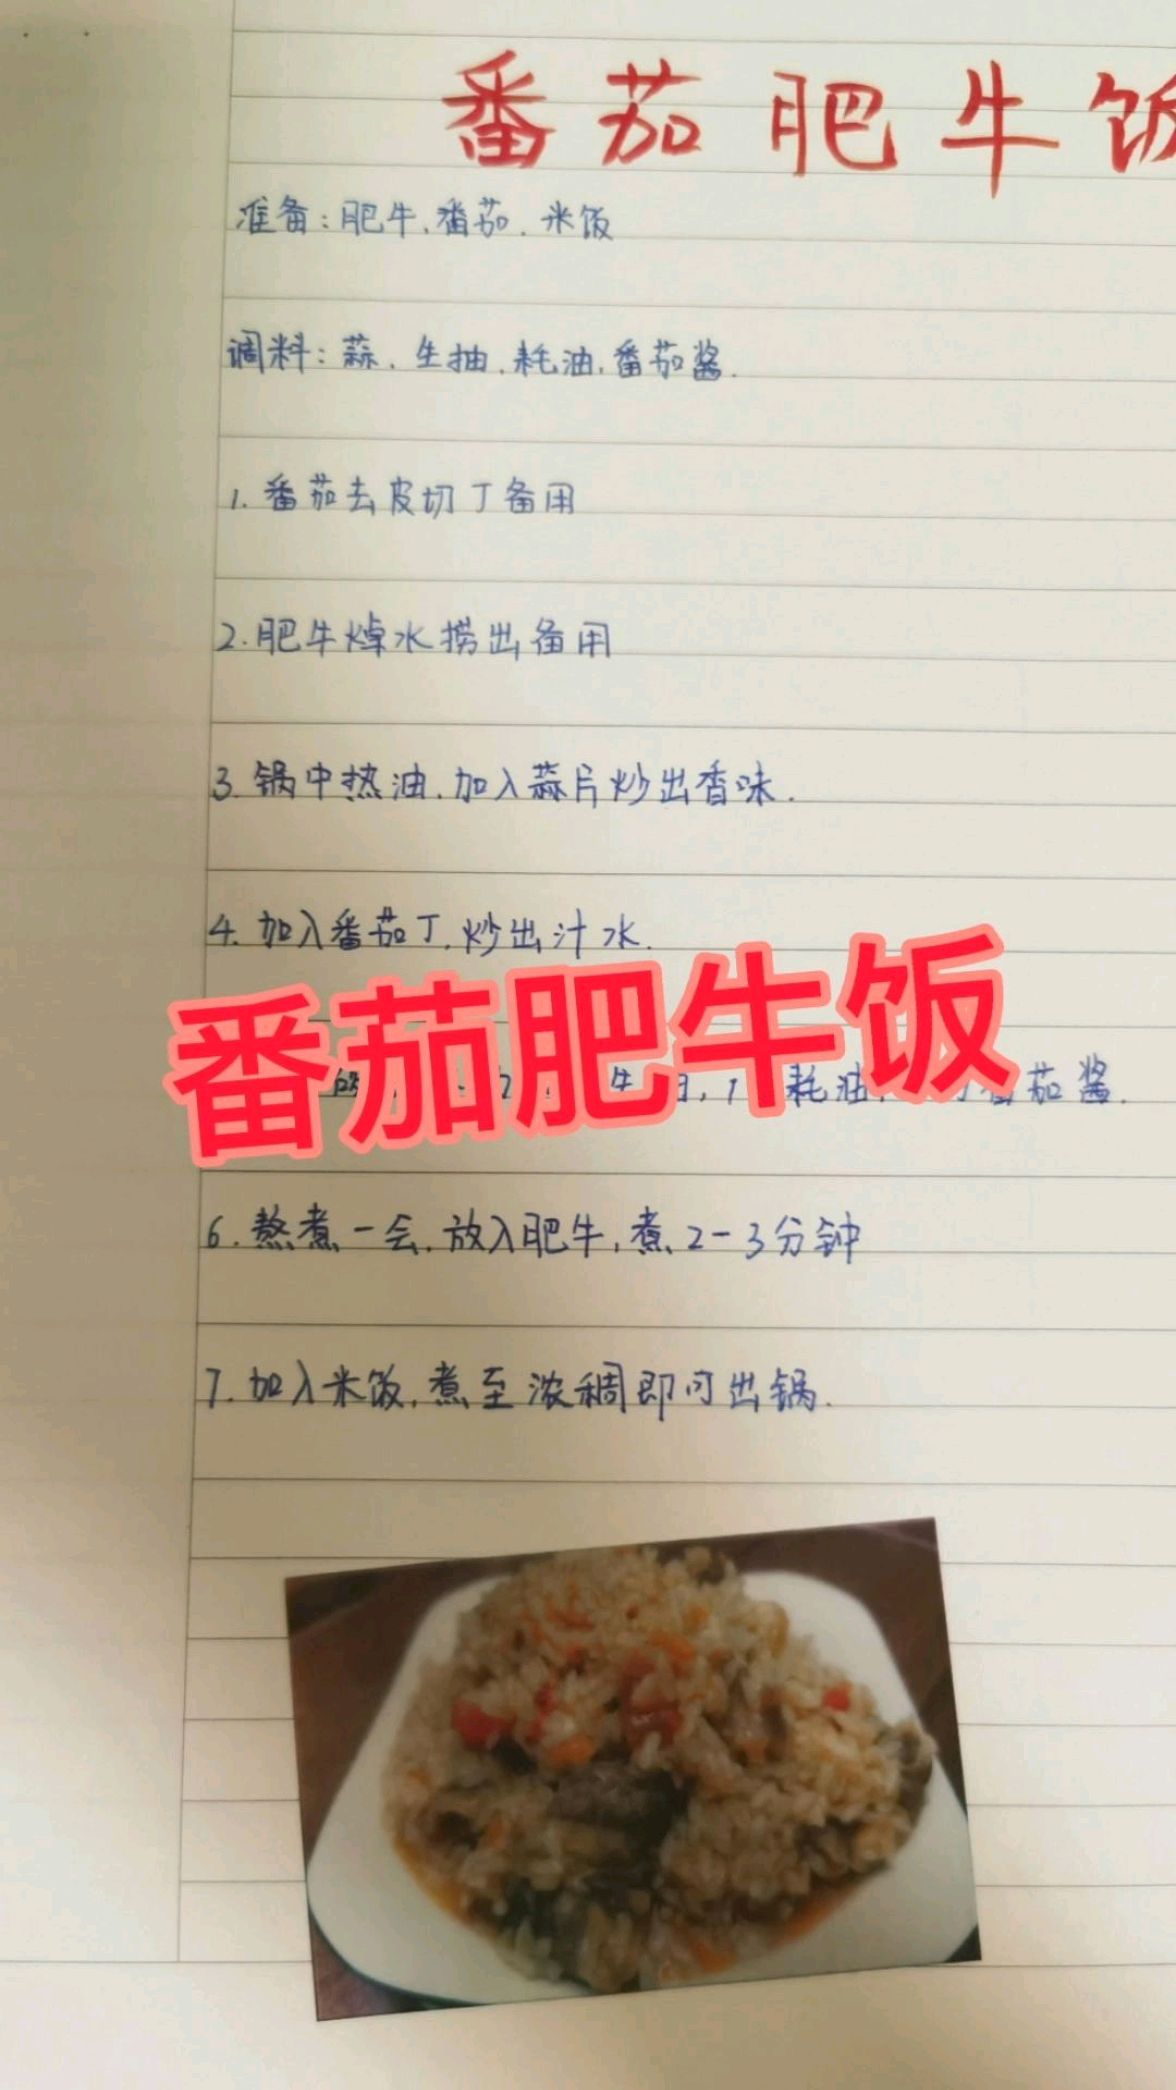 番茄肥牛饭
准备:肥牛、番茄、米饭
调料:蒜、生抽、耗油、番茄酱.
1. 番茄去皮切丁备用
2.肥牛焯水捞出备用
3.锅中热油,加入蒜片炒出香味.
4.加入番茄丁,炒出汁水.
番茄肥牛饭
耗油, 番茄酱.
6.熬煮一会,放入肥牛,煮2-3分钟
7.加入米饭,煮至浓稠即可出锅.